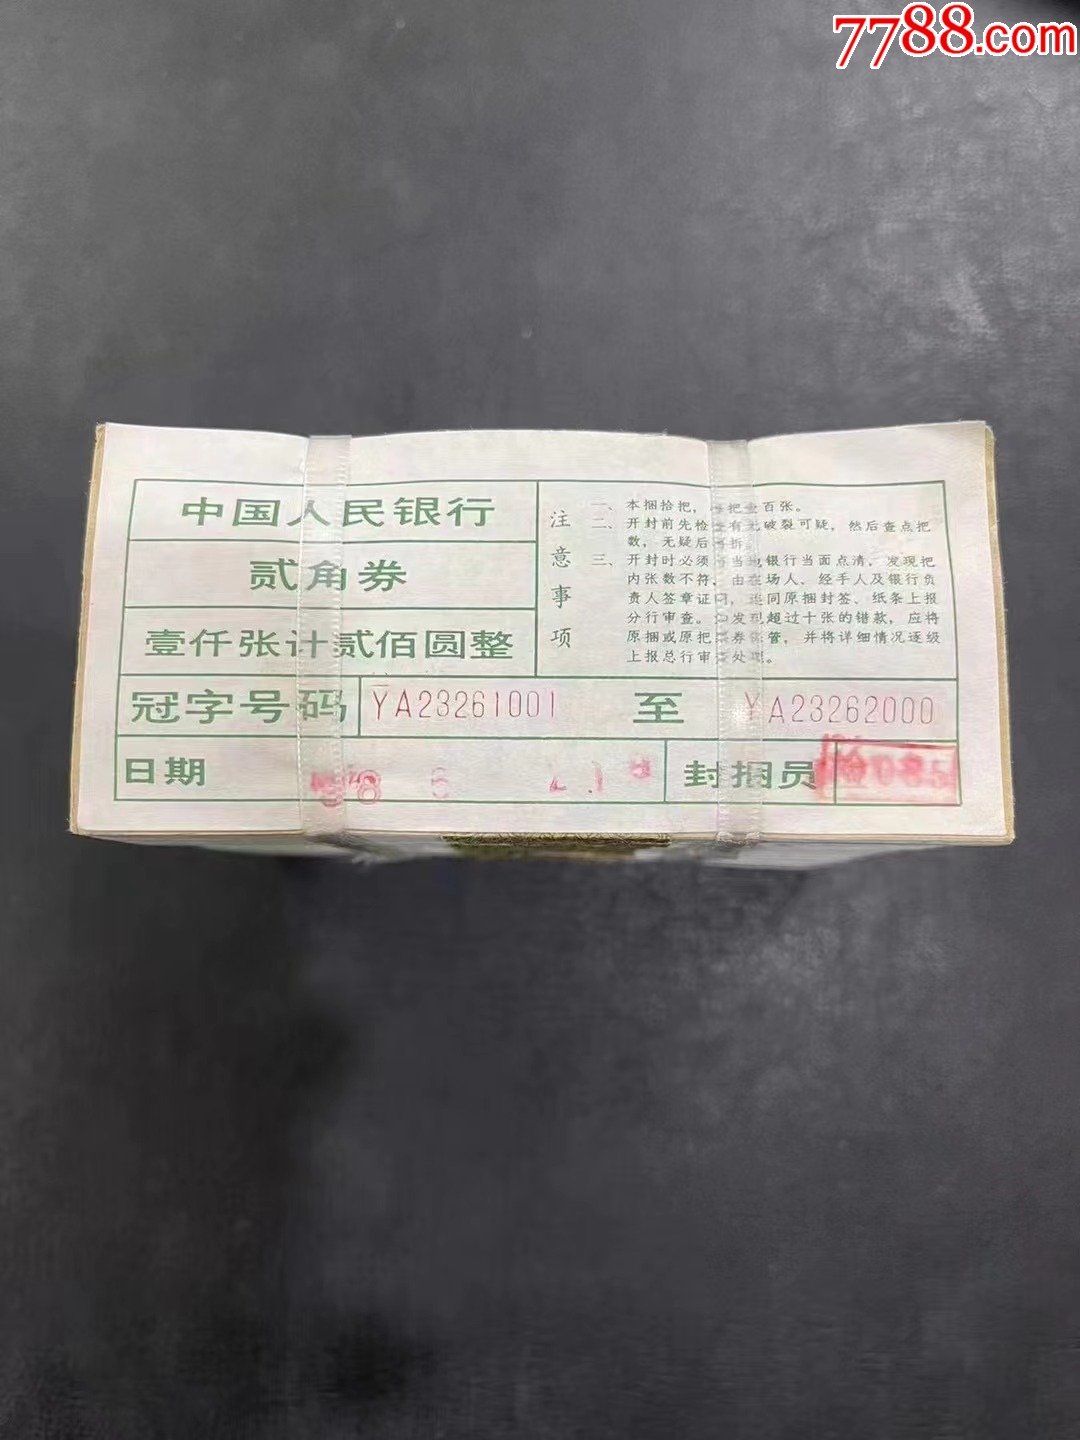 7788.com
中国人民银行
贰角券
壹仟张计贰佰圆整
注意事项
一、本捆拾把，每把壹百张。
二、开封前先检查有无破裂可疑，然后查点把
数，无疑后再拆。
三、开封时必须 当地银行当面点清，发现把
内张数不符，由在场人、经手人及银行负
责人签章证明，连同原捆封签、纸条上报
分行审查。如发现超过十张的错款，应将
原捆或原把 券保管，并将详细情况逐级
上报总行审查处理。
冠字号码 YA23261001 至 YA23262000
日期 98 6
封捆员